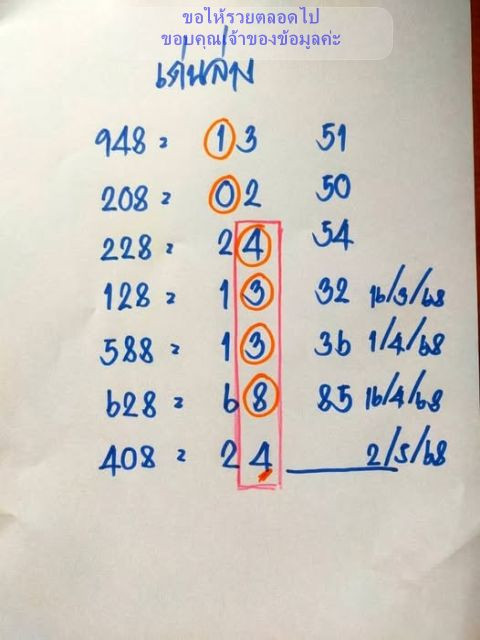 ขอให้รวยตลอดไป
ขอบคุณเจ้าของข้อมูลค่ะ
เด่นล่าง
948 = 13 51
208 = 02 50
228 = 24 54
128 = 13 32 16/3/68
588 = 13 36 1/4/68
628 = 68 85 16/4/68
408 = 24 2/5/68